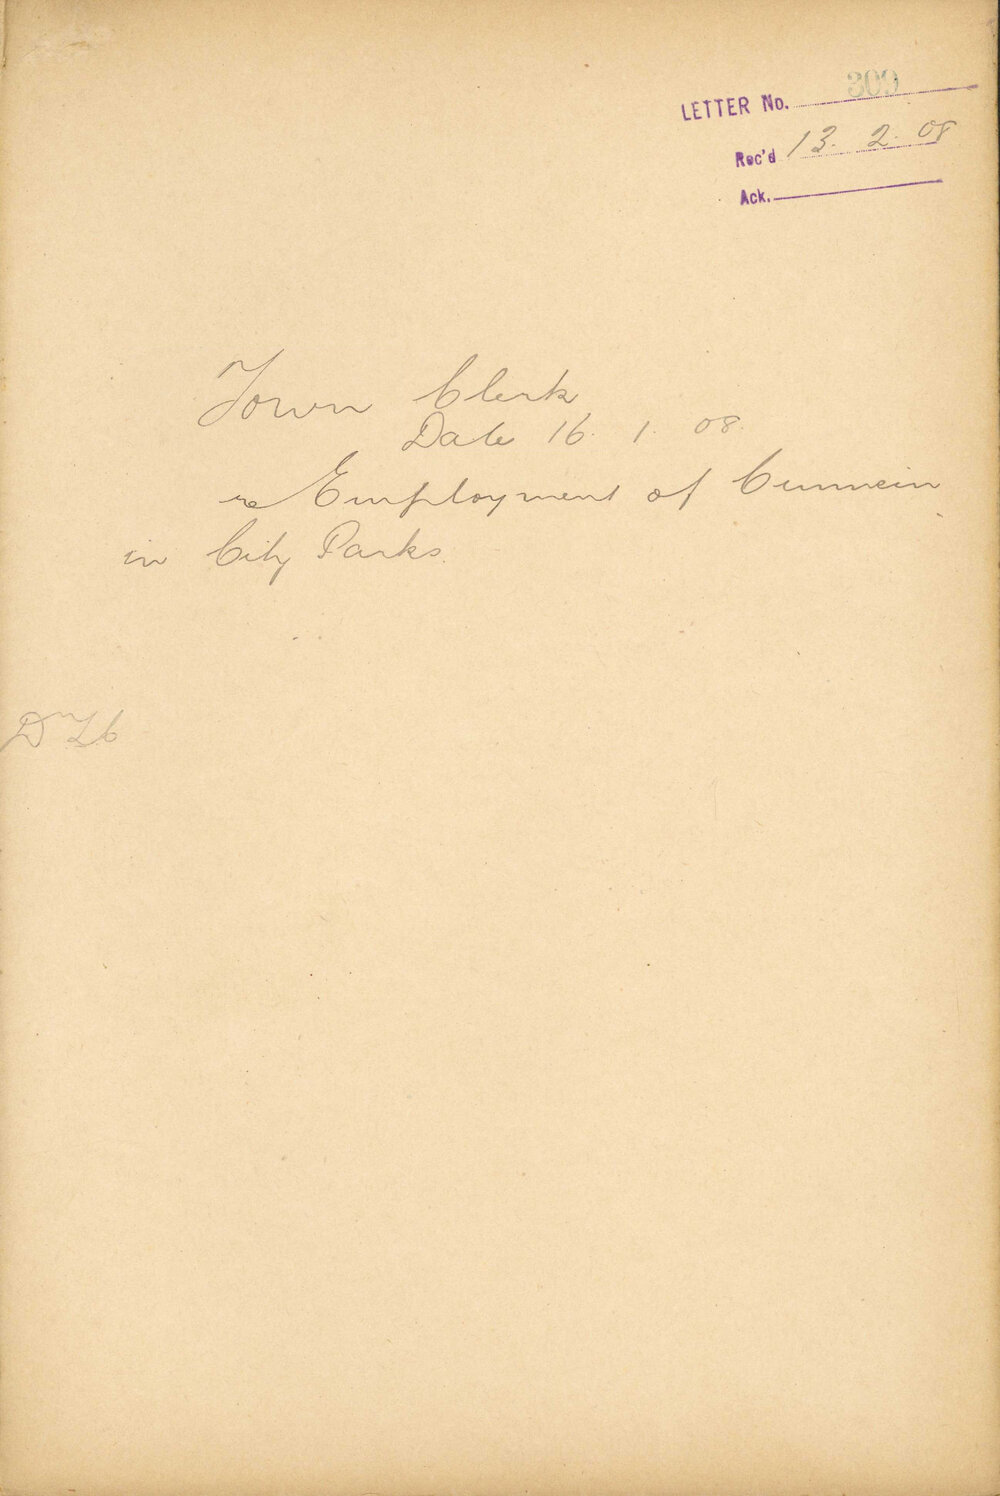 LETTER No. 309
Rec'd 13. 2. 08
Ack.
Town Clerk
Date 16. 1. 08.
re Employment of Cunnein
in City Parks.